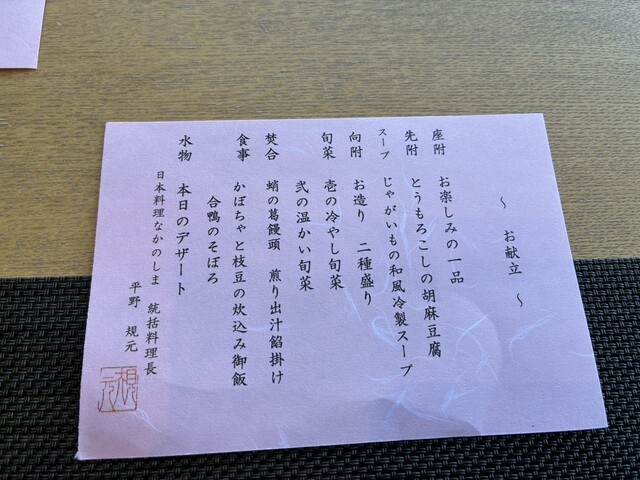 ～ お献立 ～
座附 お楽しみの一品
先附 とうもろこしの胡麻豆腐
スープ じゃがいもの和風冷製スープ
向附 お造り 二種盛り
旬菜 壱の冷やし旬菜
弐の温かい旬菜
焚合 蛸の葛饅頭 煎り出汁餡掛け
食事 かぼちゃと枝豆の炊込み御飯
合鴨のそぼろ
水物 本日のデザート
日本料理なかのしま 統括料理長
平野 規元